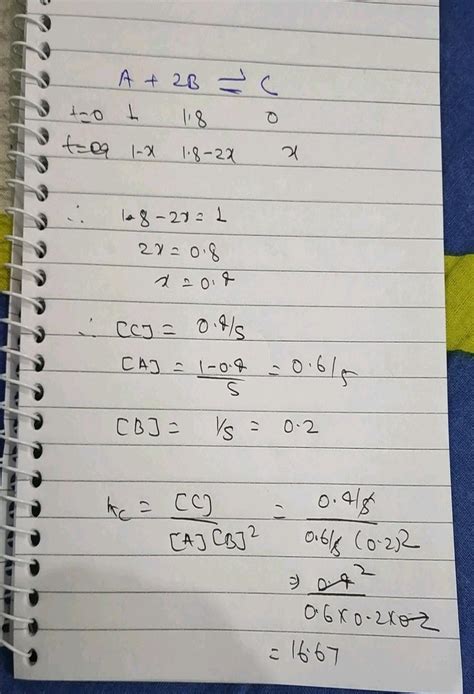 A + 2B ⇌ C
t=0 1 1.8 0
t=eq 1-x 1.8-2x x
∴ 1.8-2x=1
2x=0.8
x=0.4
∴ [C]= 0.4/5
[A] = 1-0.4/5 = 0.6/5
[B] = 1/5 = 0.2
kc = [C]/[A][B]² = 0.4/5/0.6/5 (0.2)²
⇒ 0.4²/0.6×0.2×0.2
= 16.67